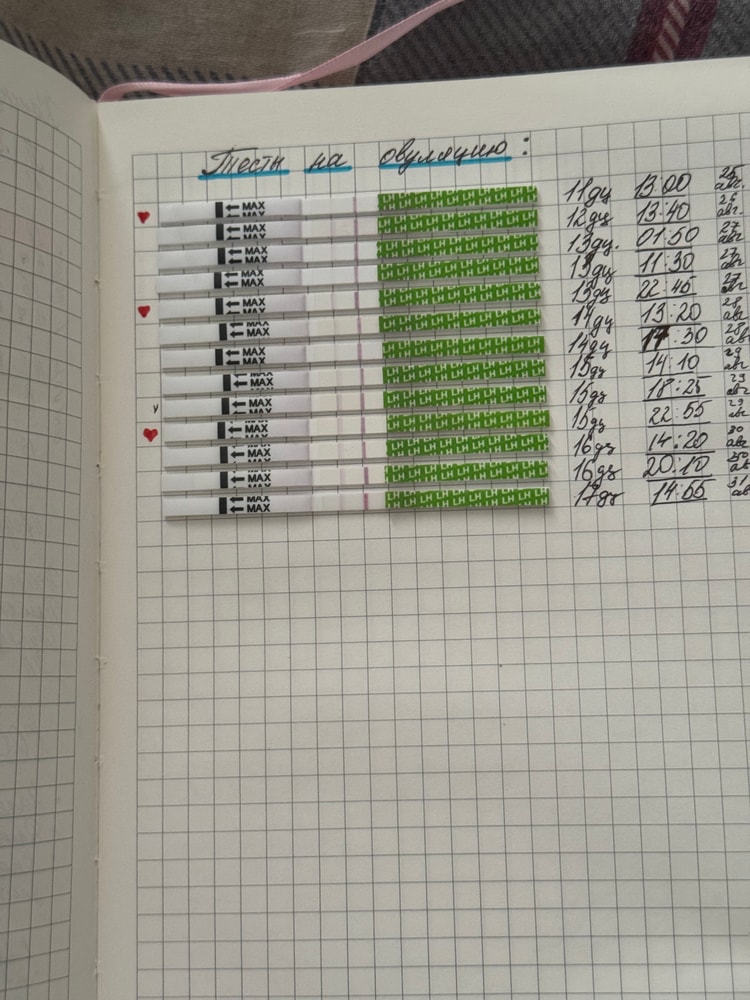 Тесты на овуляцию:
MAX 11дц 13:00 25 авг.
MAX 12дц 13:40 26 авг.
MAX 13дц. 01:50 27 авг
MAX 13дц 11:30 27 авг
MAX 13дц 22:45 27 авг
MAX 14дц 13:20 28 авг
MAX 14дц 17:30 28 авг
MAX 15дц 14:10 29 авг
MAX 15дц 18:25 29 авг
MAX 15дц 22:55 29 авг
MAX 16дц 14:20 30 авг
MAX 16дц 20:10 30 авг
MAX 17дц 14:55 31 авг